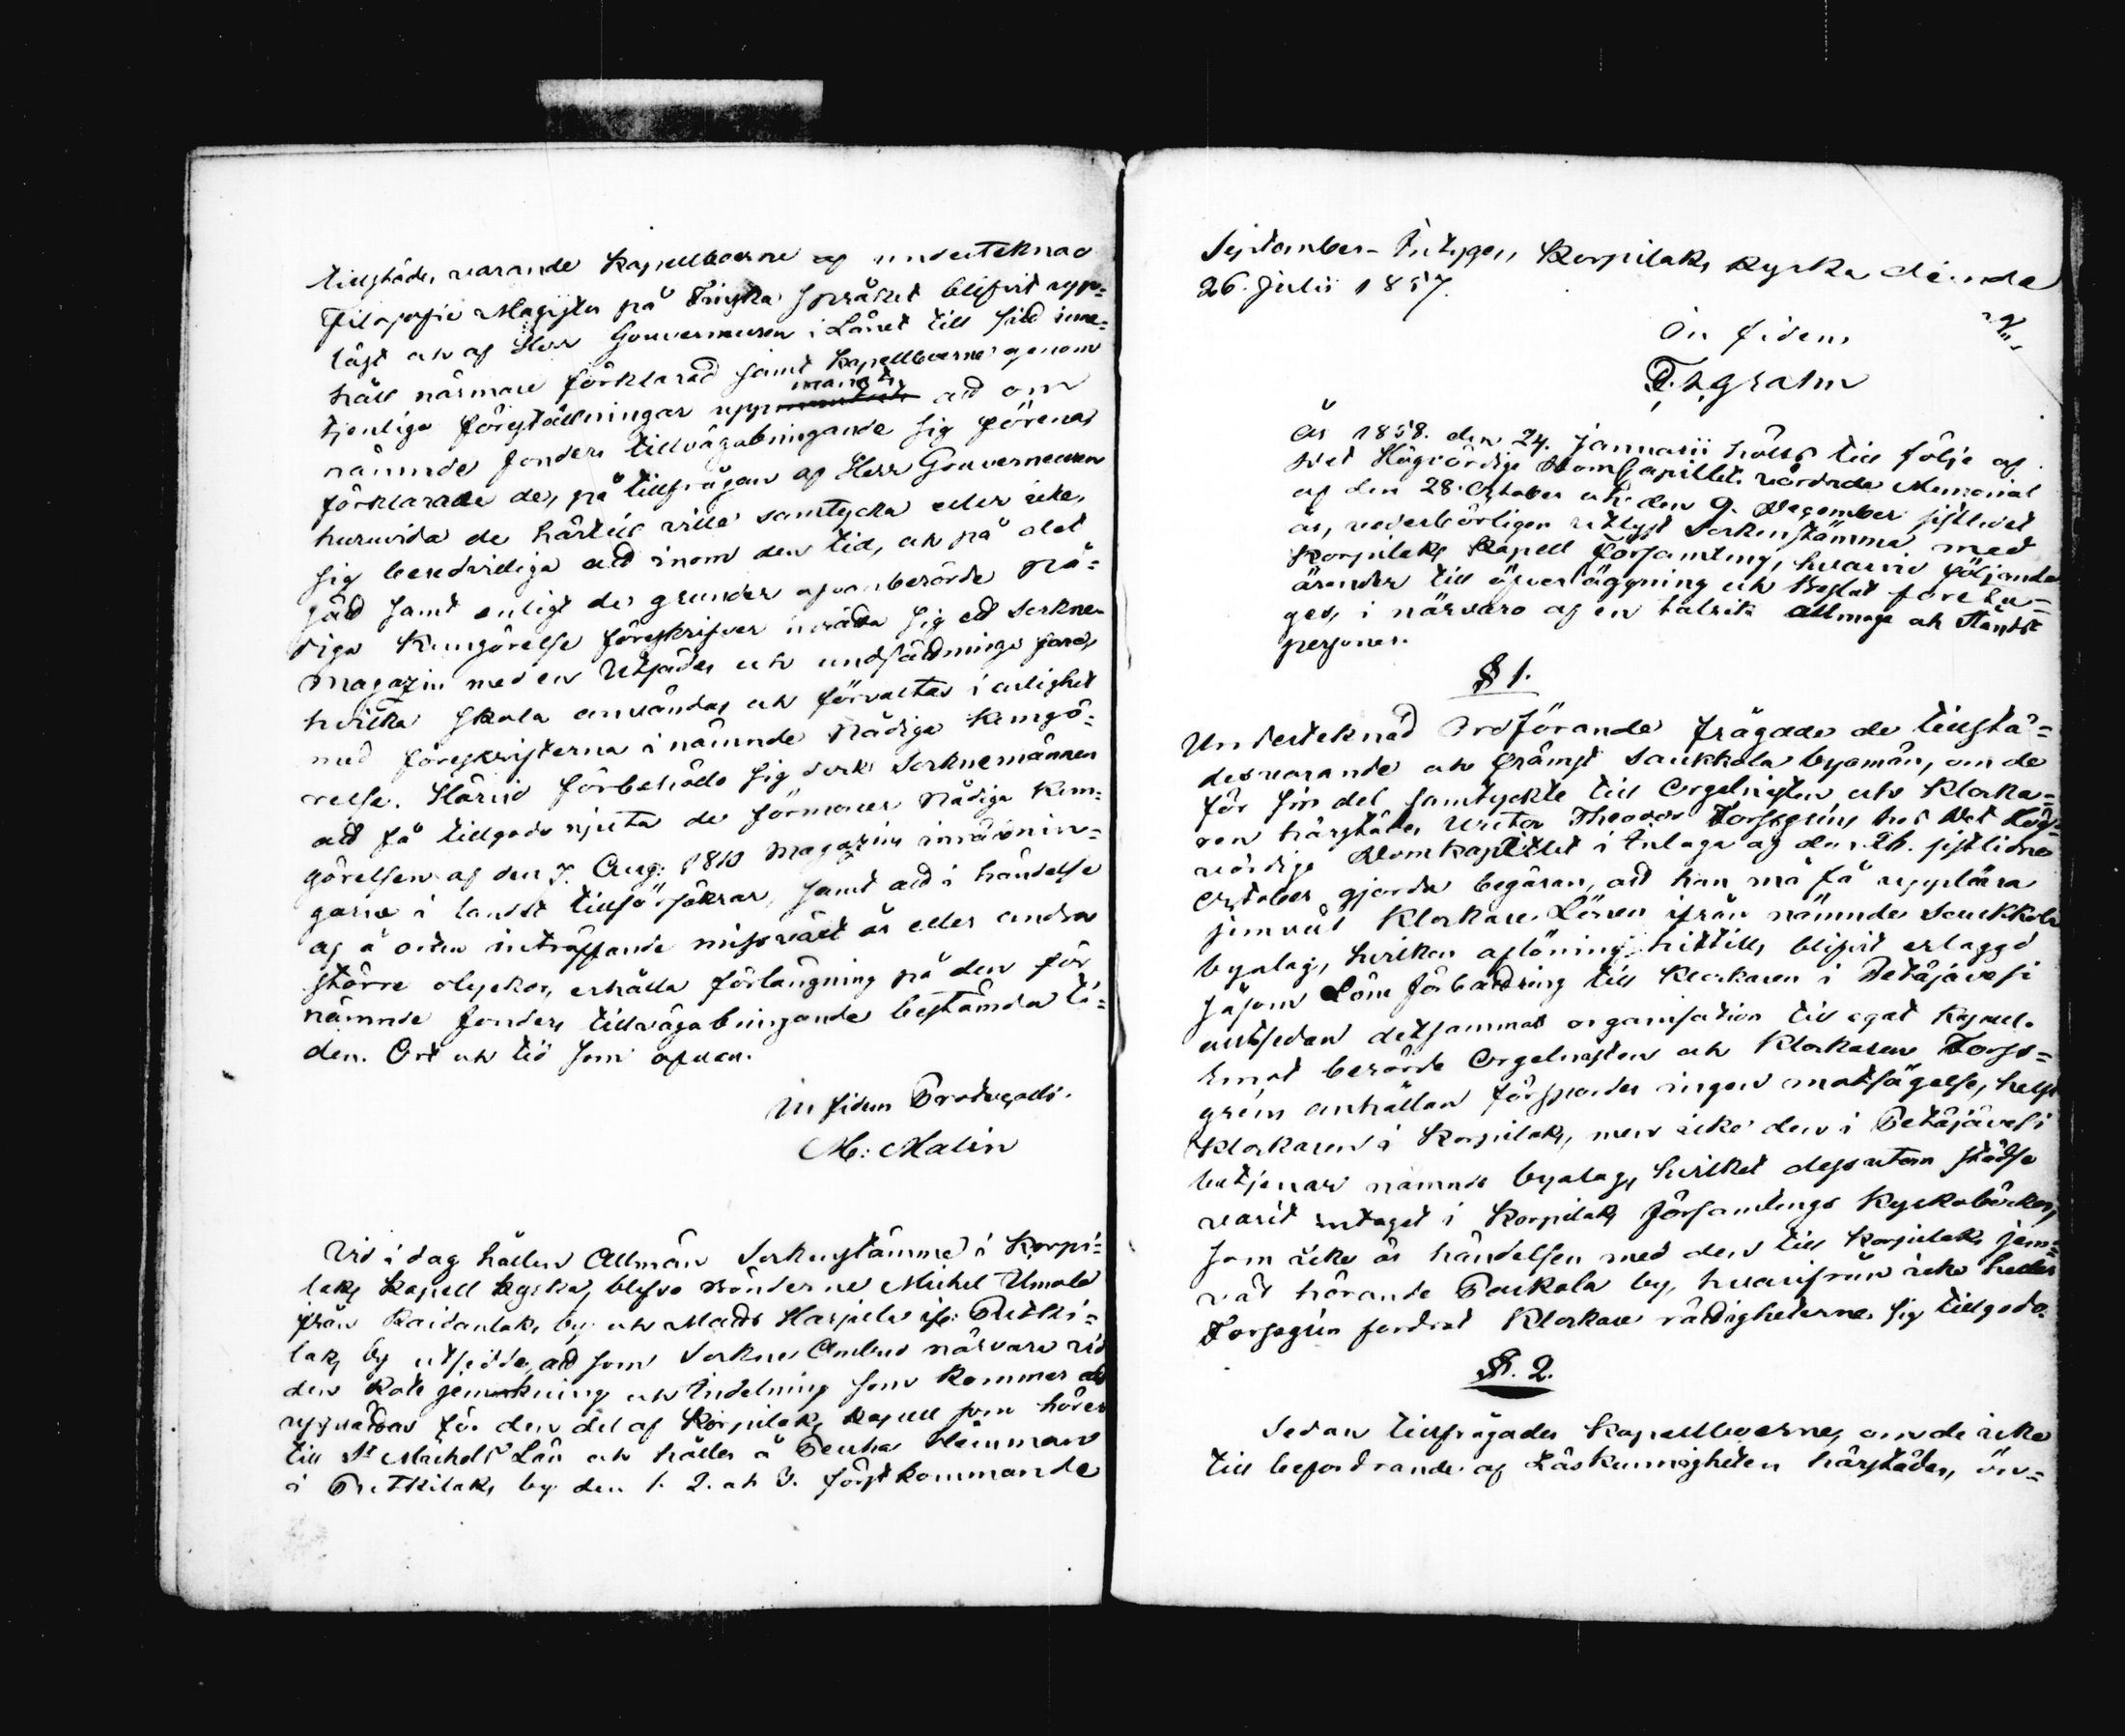 tillstädes varande Kapellboerne af undertecknad
Filosofie Magister på Finska språket blifvit upp-
läst och af Herr Gouverneuren i Länet till sitt inne-
håll närmare förklarad samt Kapellboerne genom
tjenliga föreställningar uppmanats att om
nämnde fonders tillvägabringande sig förena,
förklarade de, på tillfrågan af Herr Gouverneuren
huruvida de härtill ville samtycka eller icke,
sig beredvilliga att inom den tid, och på det
sätt samt enligt de grunder ofvanberörde Nå-
diga Kungörelse föreskrifver inrätta sig ett Sockne
Magazin med en Utsädes och undsättnings fond,
hvilka skola användas och förvaltas i enlighet
med föreskrifterna i nämnde Nådiga Kungö-
relse. Härvid förbehöllo sig dock Socknemännen
att få tillgodo njuta de förmoner Nådiga Kun-
görelsen af den 7. Aug: 18 Magazins inrättnin-
garne i landet tillförsäkrar, samt att i händelse
af å orten inträffande missväxt år eller andra
större olyckor, erhålla förlängning på den för
nämnde fonders tillvägabringande bestämda ti-
den. Ort och tid som ofvan.
In fidem Protocolli.
M: Malin
Vid i dag hållen Allmän Sockenstämma i Korpi-
laks Kapell Kyrka, blefvo Bönderne Michel Umola
från Raidanlaks by och Matts Harjula ifr: Putki-
laks by utsedde, att som Sockne Ombud närvara vid
den Rote jemkning och Indelning som kommer att
upprättas för den del af Korpilaks Kapell som hörer
till St Michels Län och hålles å Penha Hemman
i Putkilaks by den 1. 2. och 3. förstkommande
September. Intygar, Korpilaks Kyrka den
26. Julii 1857.
In fidem
Ár 1858. den 24. Januarii hölls till följe af
Det Högvördige DomCapitlets vördade Memorial
af den 28. October och den 9. December sistlidet
år, vederbörligen utlyst Sockenstämma med
Korpilaks Kapell Församling, hvarvid följande
ärender till öfverläggning och beslut företo-
ges, i närvaro af en talrik allmoge och Stånds
personer.
§ 1.
Undertecknad Ordförande frågade de tillstä-
desvarande och främst Saukkola byamän, om de
för sin del samtyckte till Orgelnisten och Klocka-
ren härstädes Victor Theodor Forsgréns hos Det Hög-
vördige Domkapitlet i Inlaga af den 26. sistlidne
October gjorda begäran, att han må få uppbära
jemväl Klockare Lönen ifrån nämnde Saukkola
byalag, hvilken aflöning hittills blifvit erlaggd
såsom Löne förbättring till Klockaren i Petäjävesi
alltsedan detsammas organisation till eget Kapell.
Emot berörde Orgelnisten och Klockaren Fors-
gréns anhållan försports ingen motsägelse, helst
Klockaren i Korpilaks, men icke den i Petäjävesi
betjenar nämnde byalag, hvilket dessutom städse
varit intaget i Korpilaks Församlings Kyrkoböcker,
som icke är händelsen med den till Korpilaks jem-
väl hörande Paskola by, hvarifrån icke heller
Forsgrén fordrat Klockare rättigheterne sig tillgodo.
§. 2.
Sedan tillfrågades Kapellboerne, om de icke
till befordrande af Läskunnigheten härstädes, ön-